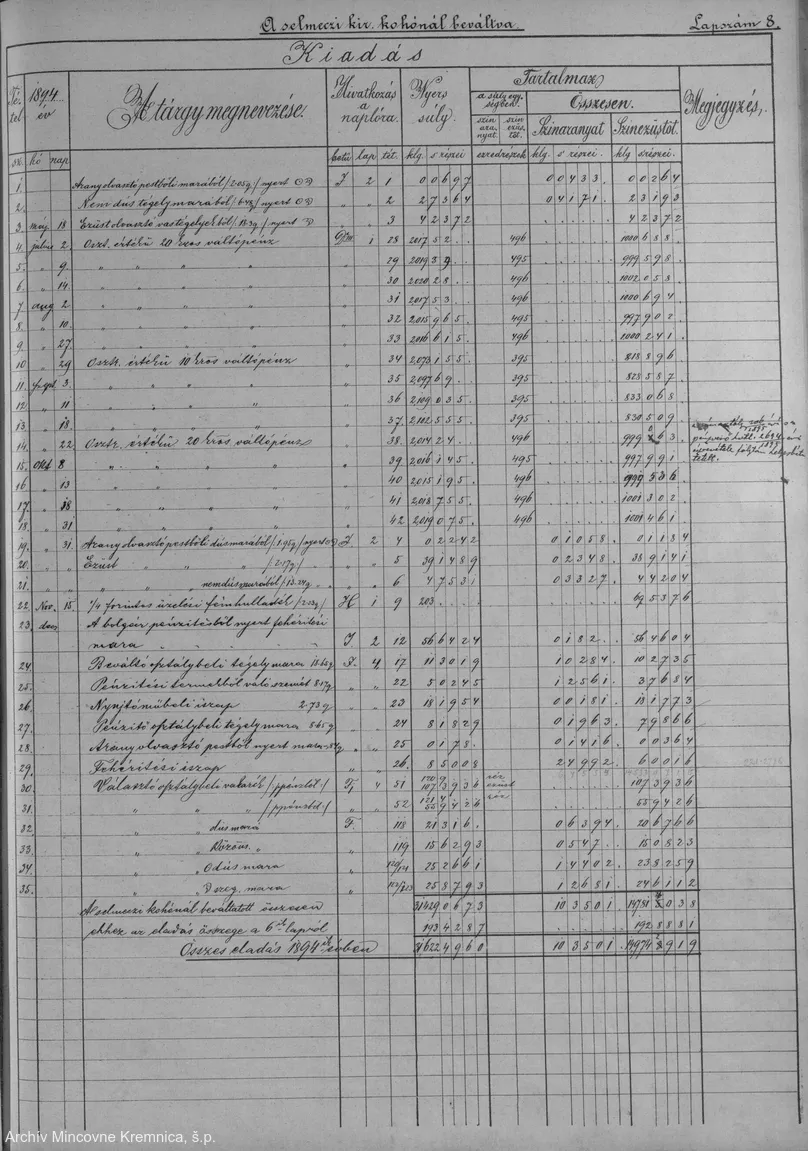 A selmeczi kir. kohónál beváltva
Lapszám 8.
Kiadás
Tétel 1894 év A tárgy megnevezése. Hivatkozás a naplóra. Nyers súly. Tartalmaz Megjegyzés.
a súly egységben. Összesen.
szin aranyat. szin ezüstöt. Szinaranyat Szinezüstöt.
sz. hó nap betű lap tét. klg. s részei ezredrészek klg. s részei. klg s részei.
1. 2 1 0 0 6 9 7 0 0 4 3 3 0 0 2 6 4
2. Nem dús tégely marából nyert 2 2 7 3 6 4 0 4 1 7 1 2 3 1 9 3
3. máj 18 Ezüst olvasztó vastégelyekből nyert 3 4 2 3 7 2 4 2 3 7 2
4. július 2 Oszt. értékű 20 kros váltópénz 1 28 2017 5 2 496 1000 6 8 8
5. " 9 " " " " 29 2019 3 9 495 999 5 9 8
6. " 14 " " " " 30 2020 2 8 496 1002 0 5 8
7. aug 2 " " " " 31 2017 5 3 496 1000 6 9 4
8. " 10. " " " " 32 2015 9 6 5 495 997 9 0 2
9. " 27 " " " " 33 2016 6 1 5 496 1000 2 4 1
10. " 29 Oszt. értékű 10 kros váltópénz 34 2073 1 5 5 395 818 8 9 6
11. szept 3. " " " " 35 2097 6 9 395 828 5 8 7
12 " 11 " " " " 36 2109 0 3 5 395 833 0 6 8
13. " 18. " " " " 37 2102 5 5 5 395 830 5 0 9
14. " 22 Oszt. értékű 20 kros váltópénz 38 2014 2 4 496 999 6 3
15. okt 8 " " " " 39 2016 1 4 5 495 997 9 9 1
16 " 13 " " " " 40 2015 1 9 5 496 999 5 3 6
17. " 18 " " " " 41 2018 7 5 5 496 1001 3 0 2
18. " 31 " " " " 42 2019 0 7 5 496 1001 4 6 1
19. " 31 Aranyolvasztó pestbőli dúsmarából nyert 2 4 0 2 2 4 2 0 1 0 5 8 0 1 1 8 4
20. Ezüst " " 5 39 1 4 8 9 0 2 3 4 8 39 1 4 1
21. " nemdúsmarából 6 4 7 5 3 1 0 3 3 2 7 4 4 2 0 4
22. Nov. 15. 1/4 forintos üzelési fémhulladék H 1 9 203 69 5 3 7 6
23. decz A bolgár pénzítésből nyert fehérítési
mara 2 12 56 6 4 2 4 0 1 8 2 56 4 6 0 4
24. Beváltó osztálybeli tégely mara 4 17 11 3 0 1 9 1 0 2 8 4 10 2 7 3 5
25. Pénzítési termekből való szemét " 22 5 0 2 4 5 1 2 5 6 1 3 7 6 8 4
26. Nyujtóműbeli iszap 2.73 g " 23 18 1 9 5 4 0 0 1 8 1 18 1 7 7 3
27. Pénzítő osztálybeli tégely mara 8.65 g " 24 8 1 8 2 9 0 1 9 6 3 7 9 8 6 6
28. Aranyolvasztó pestből nyert mara " 25 0 1 7 8 0 1 4 1 6 0 0 3 6 4
29. Fehérítési iszap " 26. 8 5 0 0 8 2 4 9 9 2 6 0 0 1 6
30. Választó osztálybeli vakarék 4 51 107 3 9 3 6 107 3 9 3 6
31. " " 52 55 9 4 2 6 55 9 4 2 6
32 " dús mara F. 118 21 3 1 6 0 6 3 9 4 20 6 7 6 6
33. " Közös " " 119 15 6 2 9 3 0 5 4 7 15 0 8 2 3
34. " Odús mara " 120/121 25 2 6 6 1 1 4 4 0 2 23 8 2 5 9
35. " D szeg. mara " 25 8 7 9 3 1 2 6 8 1 24 6 1 1 2
A selmeczi kohónál beváltatott összesen 31429 0 6 7 3 10 3 5 0 1 0 3 8
ehhez az eladás összege a 6ik lapról 193 4 2 8 7 192 8 8 8 1
Összes eladás 1894ik évben 31622 4 9 6 0 10 3 5 0 1 9 1 9
Archív Mincovne Kremnica, š.p.